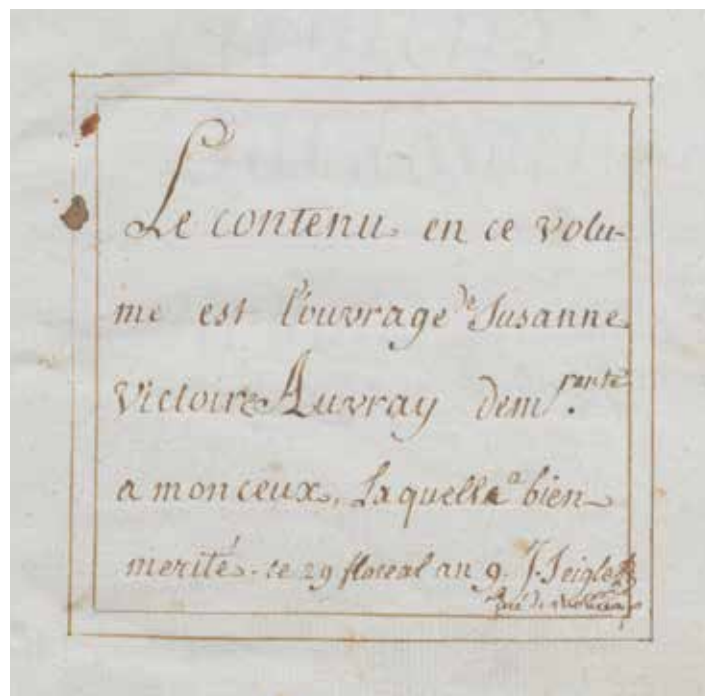 Le contenu en ce volu-
me est l'ouvrage de Susanne
Victoire Auvray dem.rante
a monceux, Laquelle a bien
merité. ce 29 floreal an 9. J. Seigle